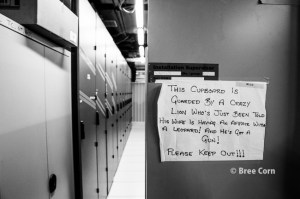 THIS CUPBOARD IS
GUARDED BY A CRAZY
LION WHO'S JUST BEEN TOLD
HIS WIFE IS HAVING AN AFFAIR WITH
A LEOPARD! AND HE'S GOT A
GUN!
PLEASE KEEP OUT!!!
© Bree Corn